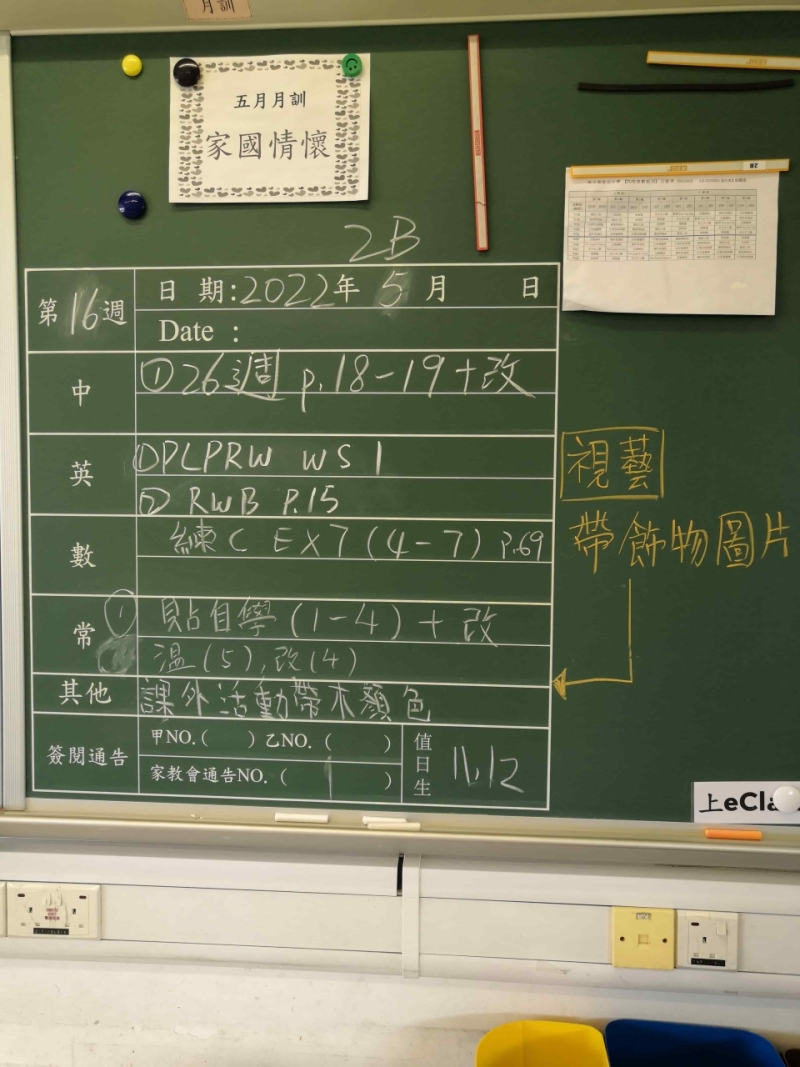 月訓
五月月訓
家國情懷
2B
第16週
日 期:2022年 5 月 日
Date :
中
①26週 p.18-19+改
英
①PLPRW WS 1
② RWB P.15
數
練C EX7(4-7) P.69
常
① 貼自學(1-4)+改
溫(5),改(4)
其他
課外活動帶木顏色
簽閱通告
甲NO.( ) 乙NO. ( )
家教會通告NO. ( 1 )
值日生
11,12
視藝
帶飾物圖片
上eCla